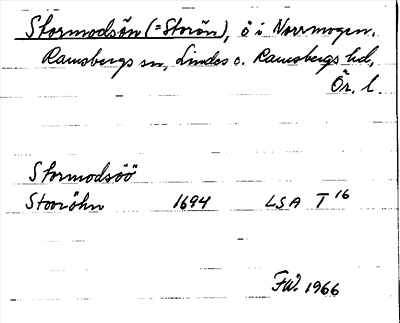 Stormodsön (=Storön), ö i Norrmogen,
Ramsbergs sn, Lindes o. Ramsbergs hd,
Ör. l.
Stormodsöö
Stooröhn 1694 LSA T 16
F.W. 1966